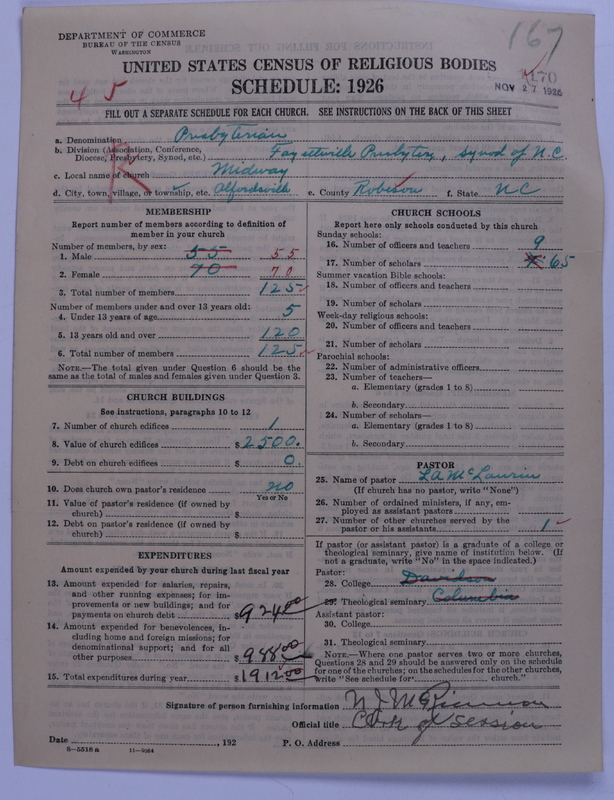 DEPARTMENT OF COMMERCE
BUREAU OF THE CENSUS
WASHINGTON
167
UNITED STATES CENSUS OF RELIGIOUS BODIES
SCHEDULE: 1926
(170)
NOV 27 1926
45
FILL OUT A SEPARATE SCHEDULE FOR EACH CHURCH. SEE INSTRUCTIONS ON THE BACK OF THIS SHEET
a. Denomination Presbyterian
b. Division (Association, Conference, Diocese, Presbytery, Synod, etc.) Fayetteville Presbytery, Synod of N.C.
c. Local name of church Midway
d. City, town, village, or township, etc. Alfordsville e. County Robeson f. State NC
MEMBERSHIP
Report number of members according to definition of member in your church
Number of members, by sex:
1. Male 55 55
2. Female 70 70
3. Total number of members 125
Number of members under and over 13 years old:
4. Under 13 years of age 5
5. 13 years old and over 120
6. Total number of members 125
NOTE.—The total given under Question 6 should be the same as the total of males and females given under Question 3.
CHURCH BUILDINGS
See instructions, paragraphs 10 to 12
7. Number of church edifices 1
8. Value of church edifices $2500.
9. Debt on church edifices $ 0.
10. Does church own pastor's residence no
Yes or No
11. Value of pastor's residence (if owned by church) $
12. Debt on pastor's residence (if owned by church) $
EXPENDITURES
Amount expended by your church during last fiscal year
13. Amount expended for salaries, repairs, and other running expenses; for improvements or new buildings; and for payments on church debt $924 00
14. Amount expended for benevolences, including home and foreign missions; for denominational support; and for all other purposes $988 00
15. Total expenditures during year $1912 00
CHURCH SCHOOLS
Report here only schools conducted by this church
Sunday schools:
16. Number of officers and teachers 9
17. Number of scholars 65
Summer vacation Bible schools:
18. Number of officers and teachers
19. Number of scholars
Week-day religious schools:
20. Number of officers and teachers
21. Number of scholars
Parochial schools:
22. Number of administrative officers
23. Number of teachers—
a. Elementary (grades 1 to 8)
b. Secondary
24. Number of scholars—
a. Elementary (grades 1 to 8)
b. Secondary
PASTOR
25. Name of pastor L A McLaurin
(If church has no pastor, write "None")
26. Number of ordained ministers, if any, employed as assistant pastors
27. Number of other churches served by the pastor or his assistants 1
If pastor (or assistant pastor) is a graduate of a college or theological seminary, give name of institution below. (If not a graduate, write "No" in the space indicated.)
Pastor:
28. College Davidson
29. Theological seminary Columbia
Assistant pastor:
30. College
31. Theological seminary
NOTE.—Where one pastor serves two or more churches, Questions 28 and 29 should be answered only on the schedule for one of the churches; on the schedules for the other churches, write "See schedule for church."
Signature of person furnishing information
Official title Clerk of Session
Date , 192 P. O. Address
8—5516a 11—9364